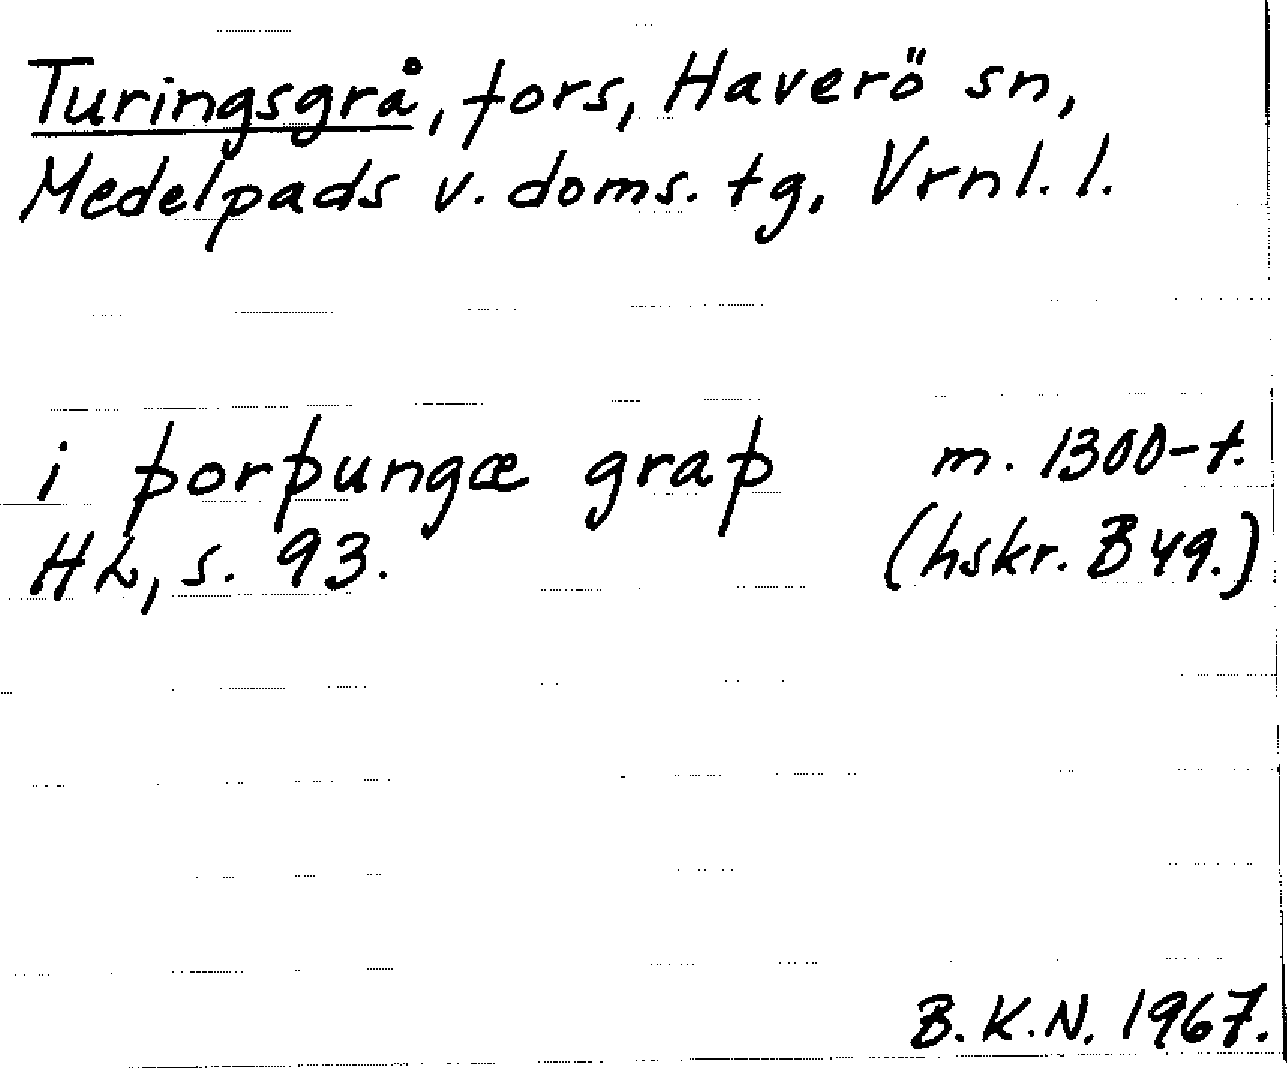 Turingsgrå, fors, Haverö sn,
Medelpads v. doms. tg, Vrnl. l.
i þorþungæ graþ m. 1300-t.
HL, s. 93. (hskr. B 49.)
B.K.N. 1967.